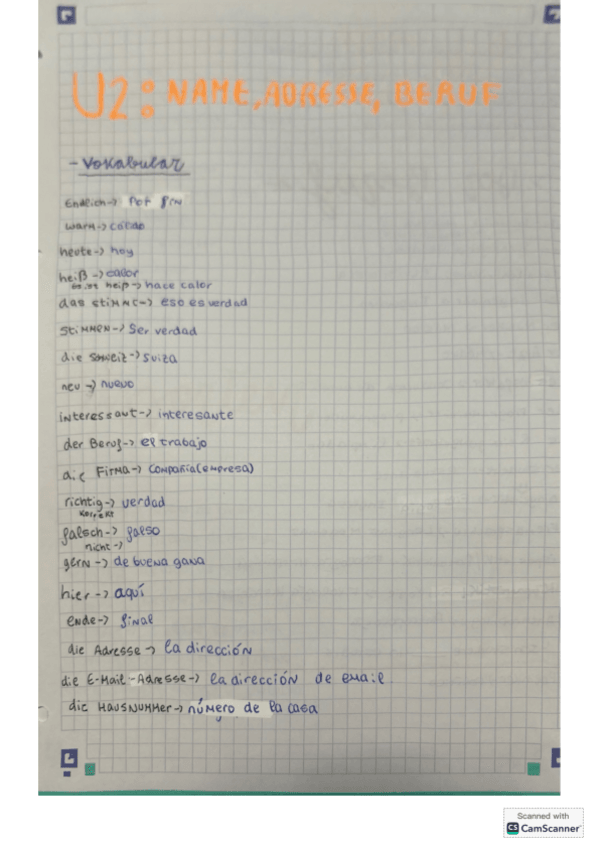 U2: NAME, ADRESSE, BERUF
- Vokabular
Endlich -> Por fin
warm -> cálido
heute -> hoy
heiß -> calor
es ist heiß -> hace calor
das stimmt -> eso es verdad
stimmen -> Ser verdad
die Schweiz -> suiza
neu -> nuevo
interessant -> interesante
der Beruf -> el trabajo
die Firma -> compañia (empresa)
richtig -> verdad
korrekt
falsch -> falso
nicht ->
gern -> de buena gana
hier -> aquí
ende -> final
die Adresse -> la dirección
die E-Mail-Adresse -> la dirección de email
die Hausnummer -> número de la casa
Scanned with
CS CamScanner